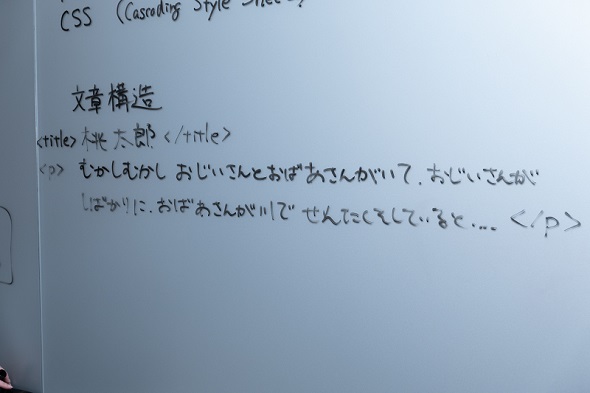 CSS (Cascading Style Sheets)
文章構造
<title>桃太郎</title>
<p> むかしむかし おじいさんとおばあさんがいて、おじいさんが
しばかりに、おばあさんが川で せんたくをしていると、... </p>